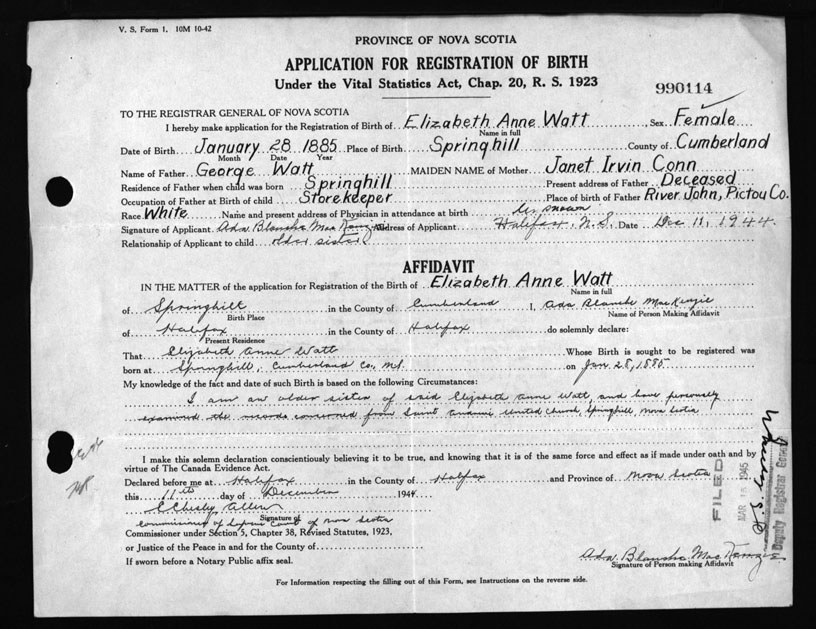 V. S. Form 1. 10M 10-42
PROVINCE OF NOVA SCOTIA
APPLICATION FOR REGISTRATION OF BIRTH
Under the Vital Statistics Act, Chap. 20, R. S. 1923
990114
TO THE REGISTRAR GENERAL OF NOVA SCOTIA
I hereby make application for the Registration of Birth of Elizabeth Anne Watt Sex Female
Name in full
Date of Birth January 28 1885 Place of Birth Springhill County of Cumberland
Month Date Year
Name of Father George Watt MAIDEN NAME of Mother Janet Irvin Conn
Residence of Father when child was born Springhill Present address of Father Deceased
Occupation of Father at Birth of child Storekeeper Place of birth of Father River John, Pictou Co.
Race White Name and present address of Physician in attendance at birth
Signature of Applicant Ada Blanche MacKenzie Address of Applicant Halifax, N.S. Date Dec 11, 1944.
Relationship of Applicant to child older sister
AFFIDAVIT
IN THE MATTER of the application for Registration of the Birth of Elizabeth Anne Watt
Name in full
of Springhill in the County of Cumberland I, Ada Blanche MacKenzie
Birth Place Name of Person Making Affidavit
of Halifax in the County of Halifax do solemnly declare:
Present Residence
That Elizabeth Anne Watt Whose Birth is sought to be registered was
born at Springhill, Cumberland Co., N.S. on Jan 28, 1885
My knowledge of the fact and date of such Birth is based on the following Circumstances:
I am an older sister of said Elizabeth Anne Watt, and have personally
examined the records concerned from Saint Andrews United Church, Springhill, Nova Scotia
I make this solemn declaration conscientiously believing it to be true, and knowing that it is of the same force and effect as if made under oath and by
virtue of The Canada Evidence Act.
Declared before me at Halifax in the County of Halifax and Province of Nova Scotia
this 11th day of December 1944
Signature of
Commissioner of Supreme Court of Nova Scotia
Commissioner under Section 5, Chapter 38, Revised Statutes, 1923,
or Justice of the Peace in and for the County of
If sworn before a Notary Public affix seal.
Ada Blanche MacKenzie
Signature of Person making Affidavit
For Information respecting the filling out of this Form, see Instructions on the reverse side.
FILED
MAR 1945
Deputy Registrar General